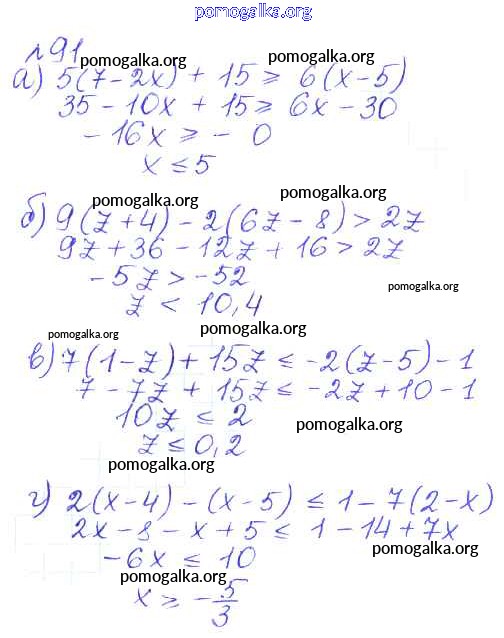 pomogalka.org
№91
pomogalka.org pomogalka.org
а) 5(7-2x) + 15 ≥ 6(x-5)
35 - 10x + 15 ≥ 6x - 30
pomogalka.org
-16x ≥ - 0
x ≤ 5
pomogalka.org pomogalka.org
б) 9(z+4) - 2(6z-8) > 2z
9z + 36 - 12z + 16 > 2z
-5z > -52
pomogalka.org
z < 10,4
pomogalka.org pomogalka.org
в) 7(1-z) + 15z ≤ -2(z-5) - 1
7 - 7z + 15z ≤ -2z + 10 - 1
10z ≤ 2
pomogalka.org
z ≤ 0,2
pomogalka.org
г) 2(x-4) - (x-5) ≤ 1 - 7(2-x)
2x - 8 - x + 5 ≤ 1 - 14 + 7x
pomogalka.org
-6x ≤ 10
pomogalka.org
x ≥ -5/3